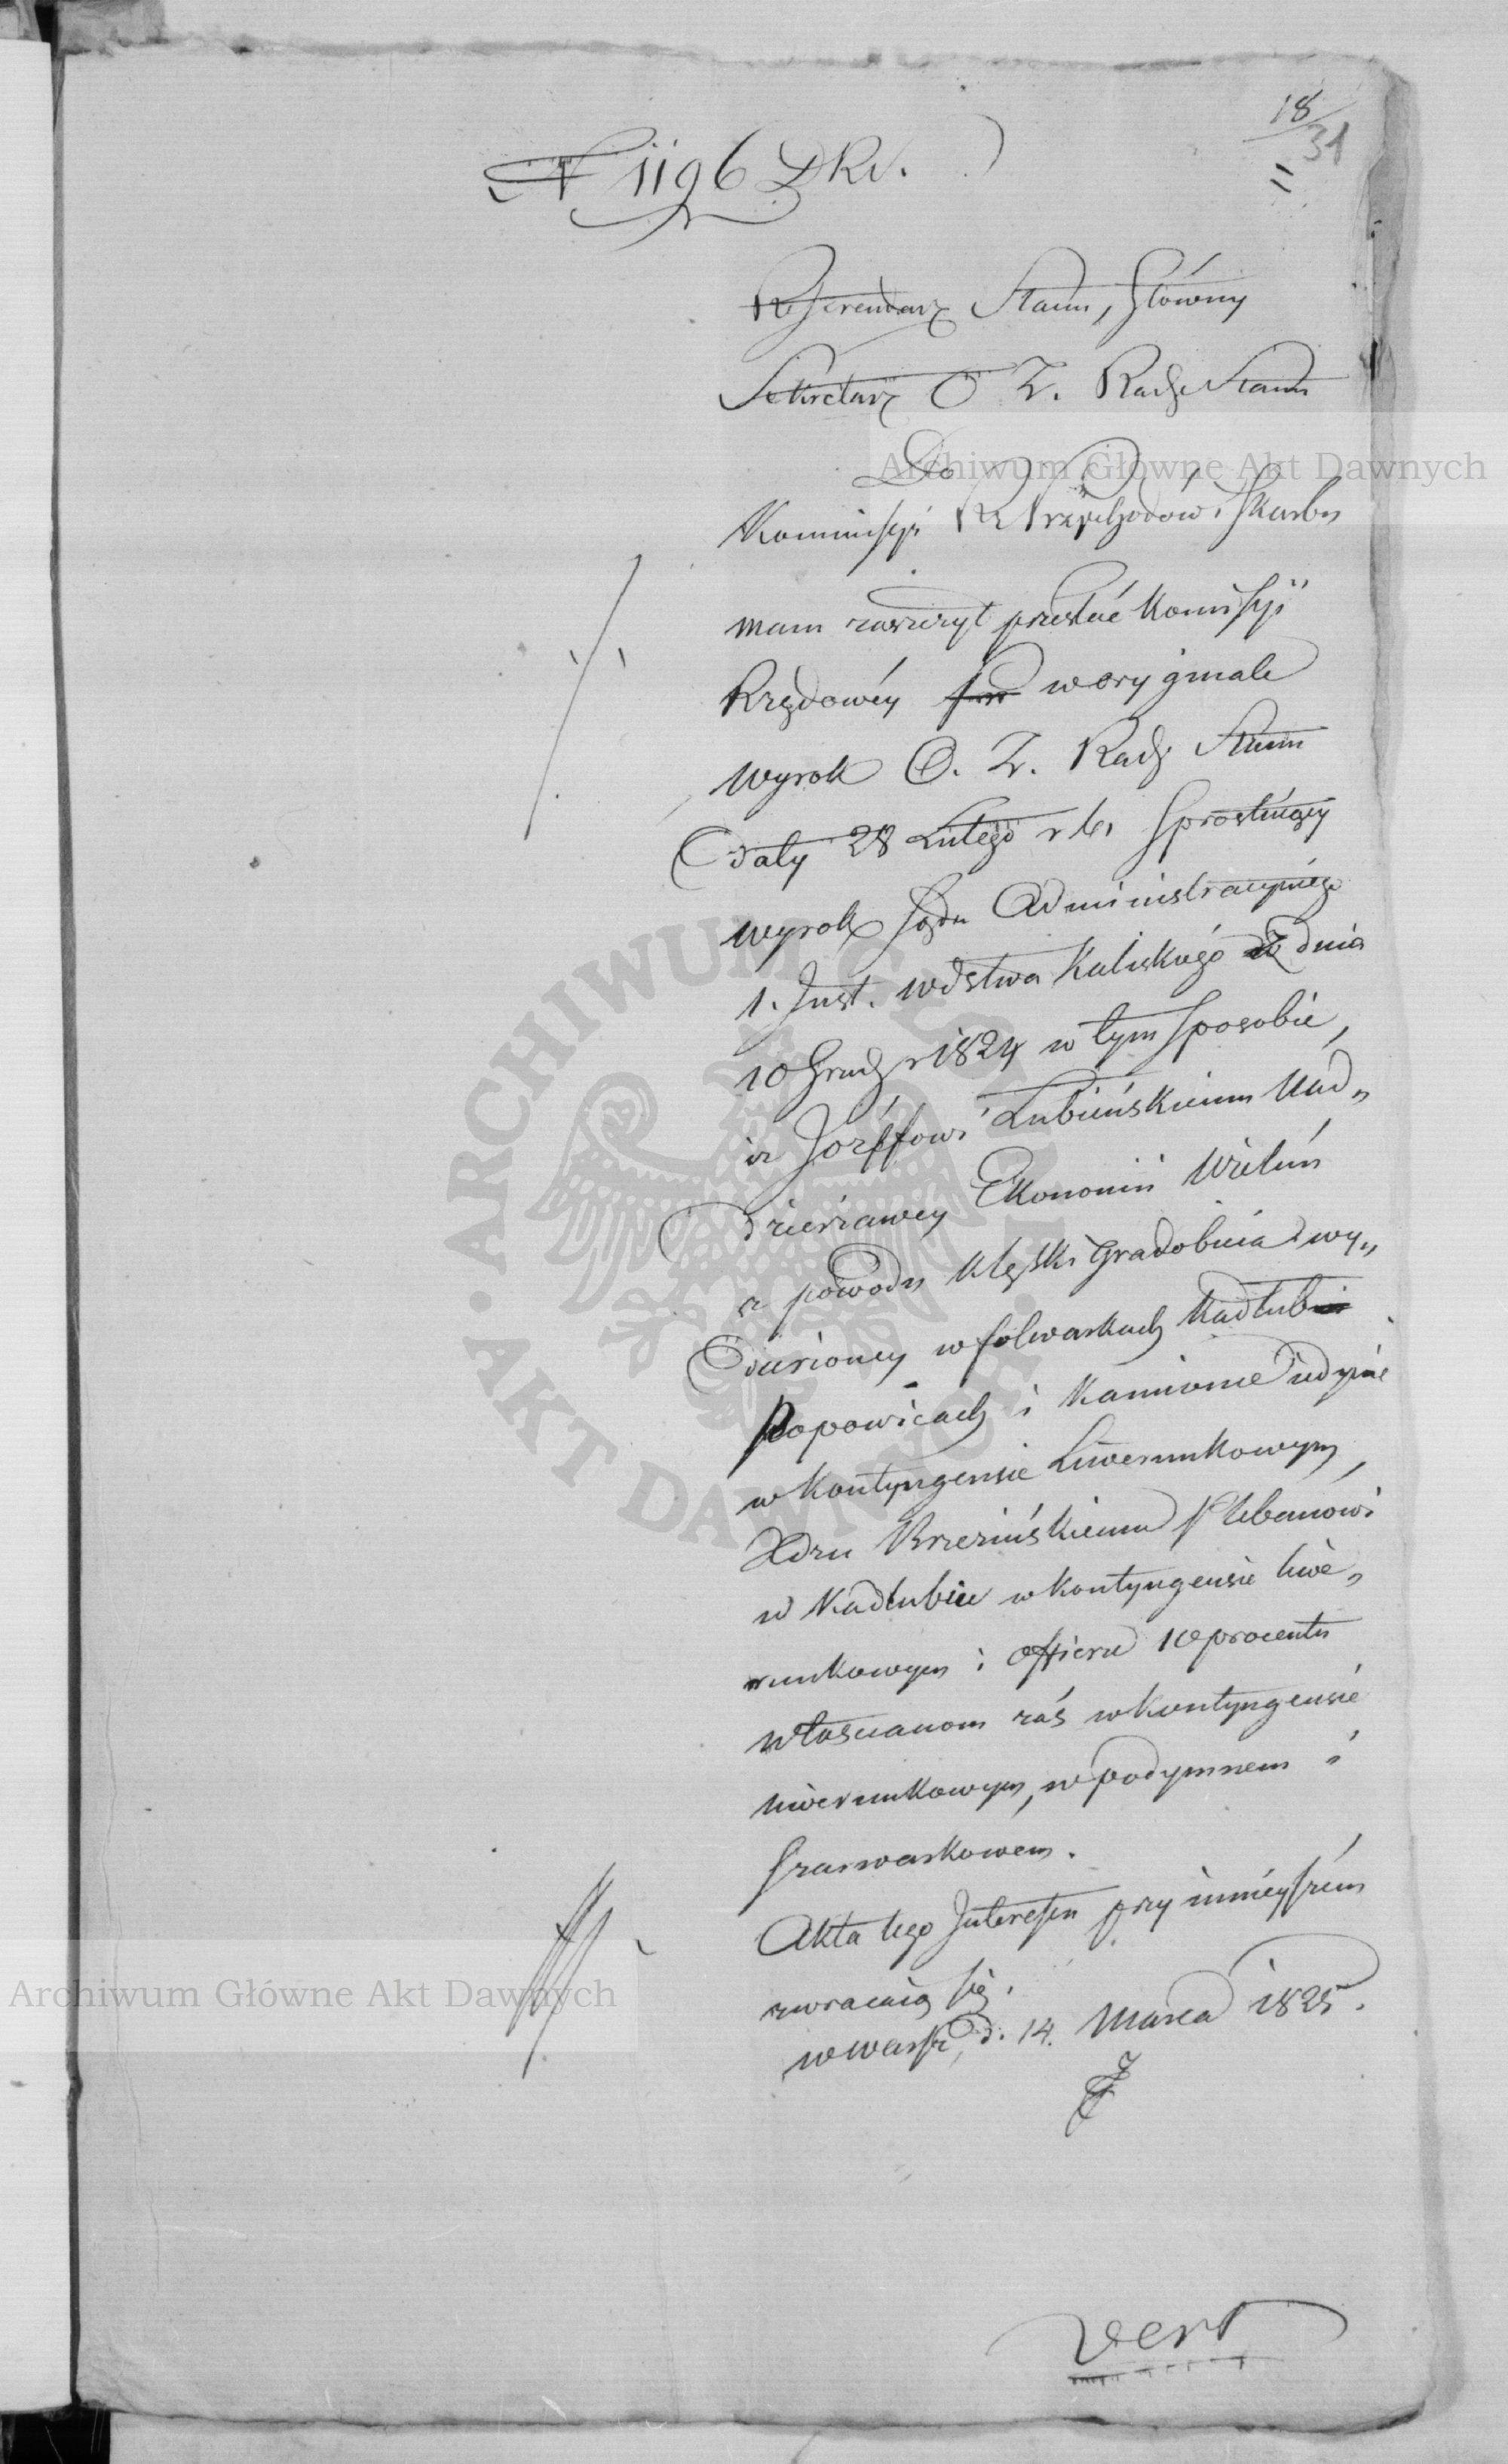 18
31
N 1196 DKN.
Referendarz Stanu, Główny
Sekretarz O Z. Rady Stanu
Do
Kommissyi R Przychodów i Skarbu
Mam zaszczyt przesłać Komissyi
Rządowéy w oryginale
wyrok O. Z. Rady Stanu
daty 28 Lutego r b. prostuiący
wyrok Sądu Administracyinego
1. Inst. Wdztwa Kaliskiego z dnia
10 Grud r 1824 w tym sposobie,
iż Józeffowi Lubieńskiemu Nad„
dzierżawcy Ekonomii Wieluń
z powodu klęski Gradobicia wy„
darzoney w folwarkach Kadłub
Popowicach i Kamionie iedynie
w kontyngensie Liwerunkowym,
Xdzu Brzezińskiemu Plebanowi
w Kadłubie w kontyngensie liwe„
runkowym i offierze 10 procentu
włościanom zaś w kontyngensie
liwerunkowym, w podymnem i
szarwarkowem.
Akta tego Interesu przy ninieyszém
zwracaią się.
w Warsz, d. 14. Marca 1825.
vert
Archiwum Główne Akt Dawnych
Archiwum Główne Akt Dawnych
ARCHIWUM GŁÓWNE AKT DAWNYCH